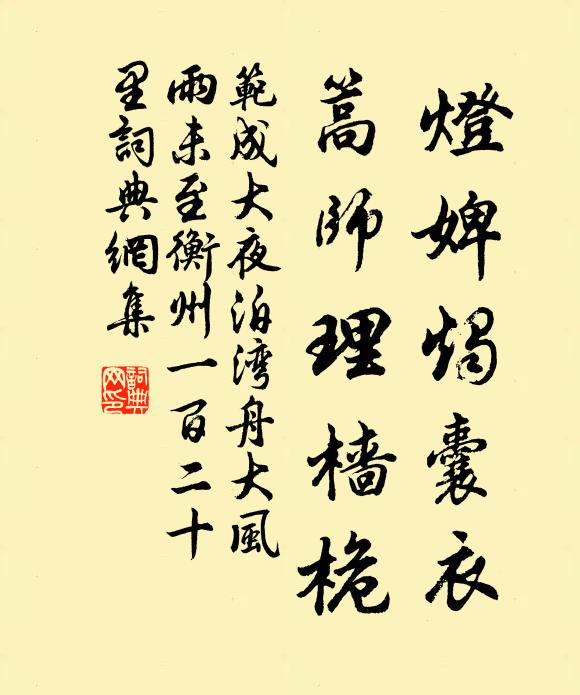 燈婢燭囊衣
篙師理檣桅
範成大夜泊灣舟大風
雨未至衡州一百二十
里詞典網集
詞典
网印